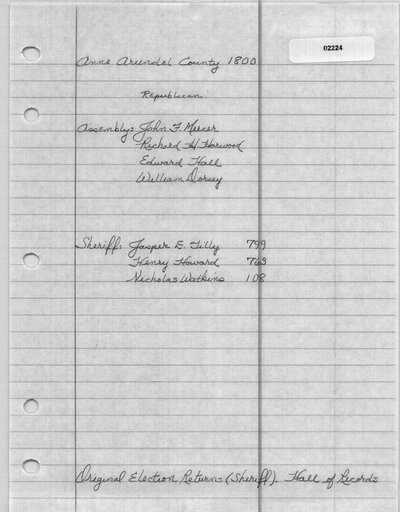 02224
Anne Arundel County 1800
Republican
Assembly: John F. Mercer
Richard H. Harwood
Edward Hall
William Dorsey
Sheriff: Jasper E. Tilly 799
Henry Howard 763
Nicholas Watkins 108
Original Election Returns (Sheriff). Hall of Records